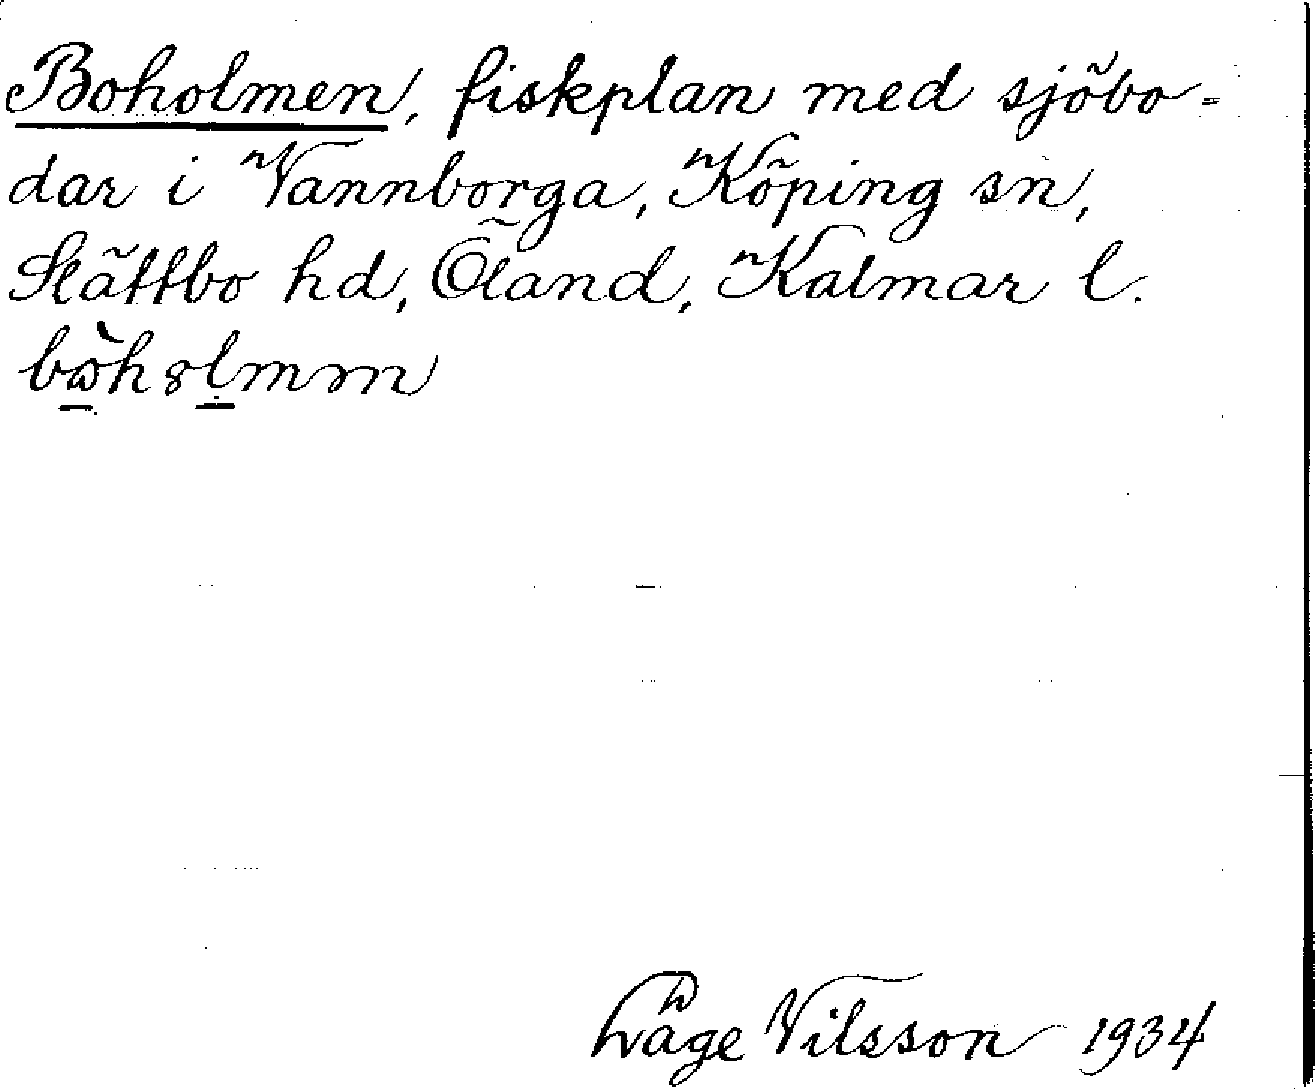 Boholmen, fiskplan med sjöbo-
dar i Vannborga, Köping sn,
Slättbo hd, Öland, Kalmar l.
Nilsson 1934